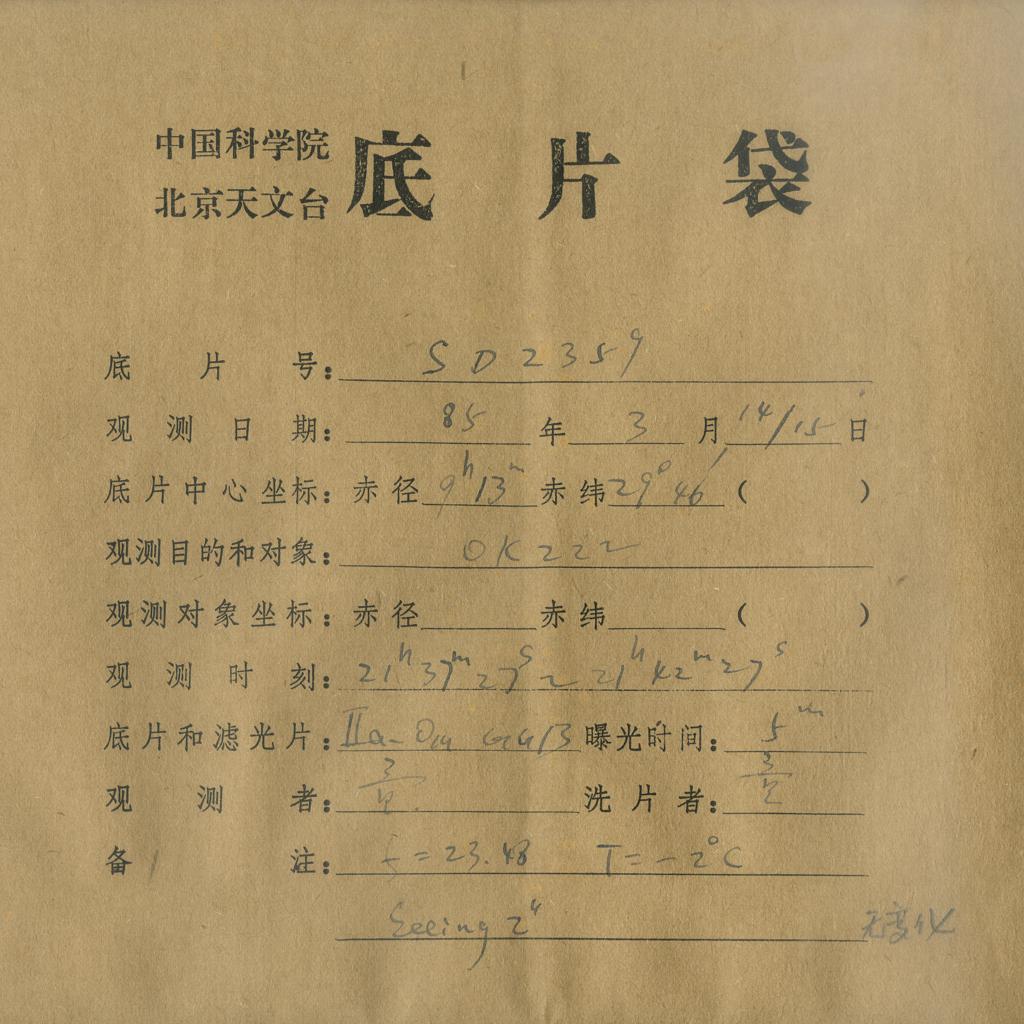 中国科学院
北京天文台 底片袋
底片号: SD2359
观测日期: 85年3月14/15日
底片中心坐标: 赤径 9h13m 赤纬 29°46′ ( )
观测目的和对象: OK222
观测对象坐标: 赤径 赤纬 ( )
观测时刻: 21h37m27s ~ 21h42m27s
底片和滤光片: IIa-O GG13 曝光时间: 5m
观测者: 洗片者:
备注: =23.48 T=-2°C
Seeing 2"
无变化